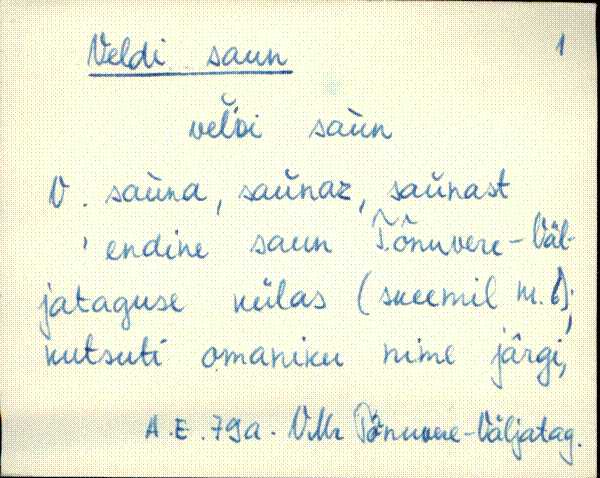 Veldi saun 1
vel̆'di saùn
V. saùna, saŭnaz, saŭnast
, endine saun Tõnuvere-Väl-
jataguse külas (skeemil m. 6);
kutsuti omaniku nime järgi,
A.E. 79a. V.Mr Tõnuvere-Väljatag.